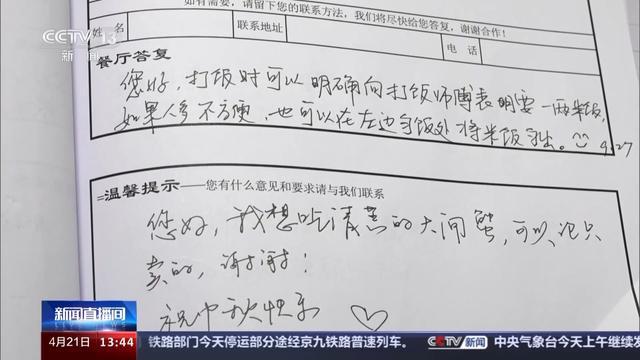 如有需要,请留下您的联系方法,我们将尽快给您答复,谢谢合作!
CCTV 13
新闻
姓名
联系地址
电话
餐厅答复
您好,打饭时可以明确向打饭师傅表明要一两米饭,
如果人多不方便,也可以在左边 饭处将米饭 出。
4.27
温馨提示——您有什么意见和要求请与我们联系
您好,我想吃清蒸的大闸蟹,可以论只
卖的,谢谢!
祝中秋快乐
新闻直播间
4月21日 13:44
铁路部门今天停运部分途经京九铁路普速列车。
CCTV 新闻
中央气象台今天上午继续发